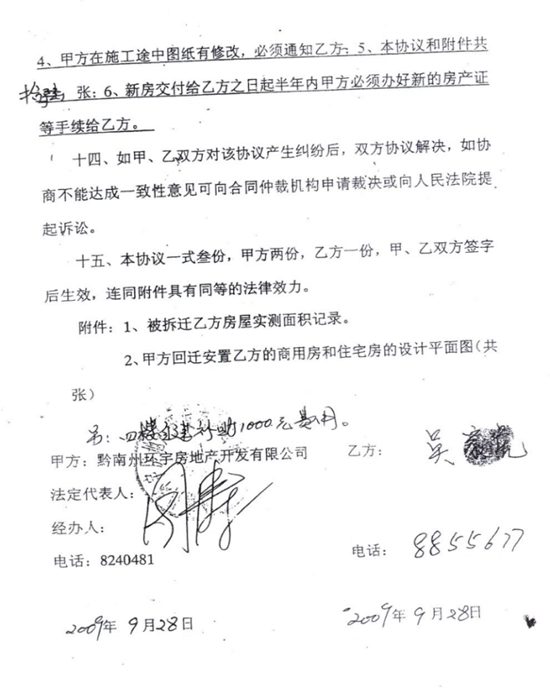 4、甲方在施工途中图纸有修改,必须通知乙方;5、本协议和附件共
张;6、新房交付给乙方之日起半年内甲方必须办好新的房产证
等手续给乙方。
十四、如甲、乙双方对该协议产生纠纷后,双方协议解决,如协
商不能达成一致性意见可向合同仲裁机构申请裁决或向人民法院提
起诉讼。
十五、本协议一式叁份,甲方两份,乙方一份,甲、乙双方签字
后生效,连同附件具有同等的法律效力。
附件:1、被拆迁乙方房屋实测面积记录。
2、甲方回迁安置乙方的商用房和住宅房的设计平面图(共
张)
补助1000元
甲方:黔南州环宇房地产开发有限公司
乙方:吴
法定代表人:
经办人:
电话:8240481
电话:8855677
2009年9月28日
2009年9月28日